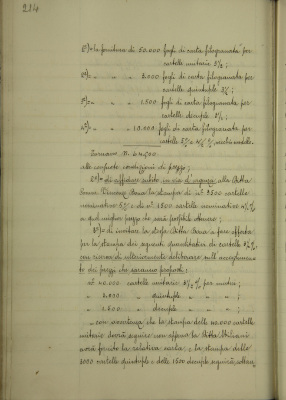 214
1°) la fornitura di 50.000 fogli di carta filogranata per
cartelle unitarie 3½ ;
2°) " " " 3.000 fogli di carta filogranata per
cartelle quintuple 3½ ;
3°) " " " 1.500 fogli di carta filogranata per
cartelle decuple 3½ ;
4°) " " " 10.000 fogli di carta filogranata per
cartelle
Tornano N.
alle seguenti condizioni di prezzo ;
di affidare subito in via d'urgenza alla Ditta
la stampa di n° 3500 cartelle
nominative 5% e di n° 3500 cartelle nominative
a quel miglior prezzo che sarà possibile ottenere ;
di invitare la stessa Ditta a fare offerta
per la stampa dei seguenti quantitativi di cartelle
con riserva di ulteriormente deliberare sull'accoglimento
dei prezzi che saranno proposti :
n° 40.000 cartelle unitarie 3½ % per
" 3.000 " quintuple " " " ;
" 1.500 " decuple " " " ;
con avvertenza che la stampa delle 40.000 cartelle
unitarie dovrà seguire non appena la Ditta
avrà fornito la relativa carta, e la stampa delle
3000 cartelle quintuple e delle 1500 decuple seguirà